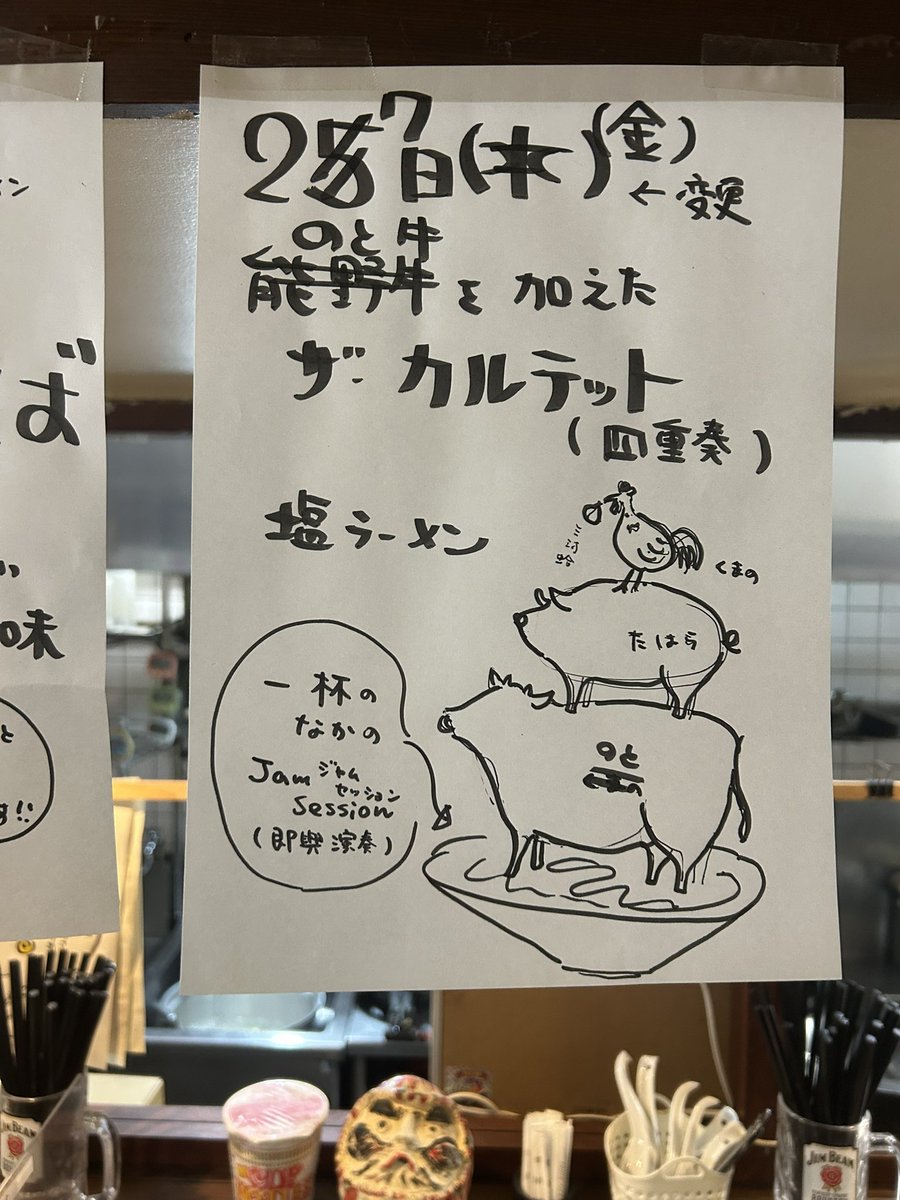 27日(木)(金)
←変更
のと牛
能野牛を加えた
ザ・カルテット
(四重奏)
塩ラーメン
三河
蛤
くまの
たはら
のと
一杯の
なかの
Jam ジャム
セッション
Session
(即興演奏)
ば
味
と
す!!
JIM BEAM
JIM BEAM